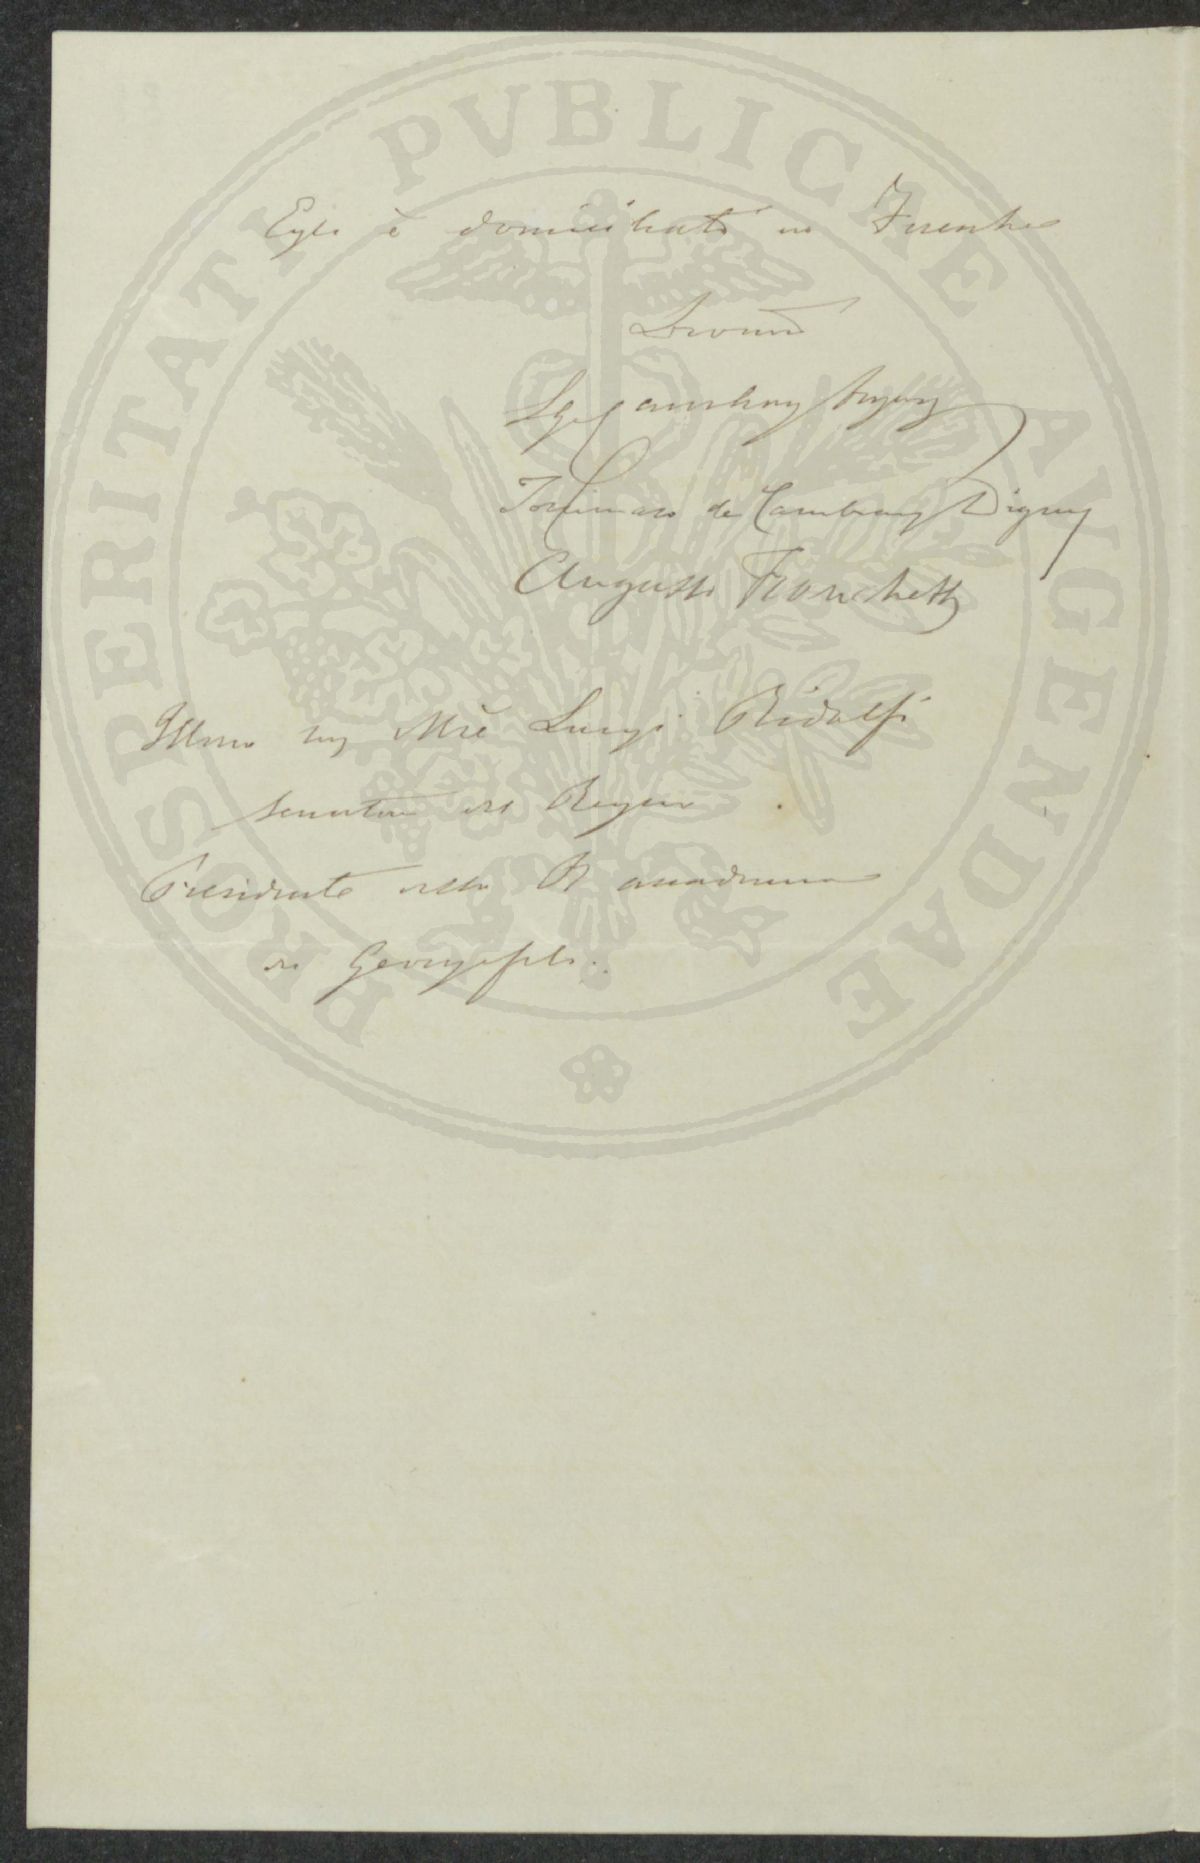 PROSPERITATI PVBLICAE AVGENDAE
Egli è domiciliato in Firenze
Devmi
Cambray Digny
Tommaso de Cambray Digny
Augusto Franchetti
Illmo Sig Mse Luigi Ridolfi
Senatore del Regno
Presidente della R accademia
dei Georgofili.